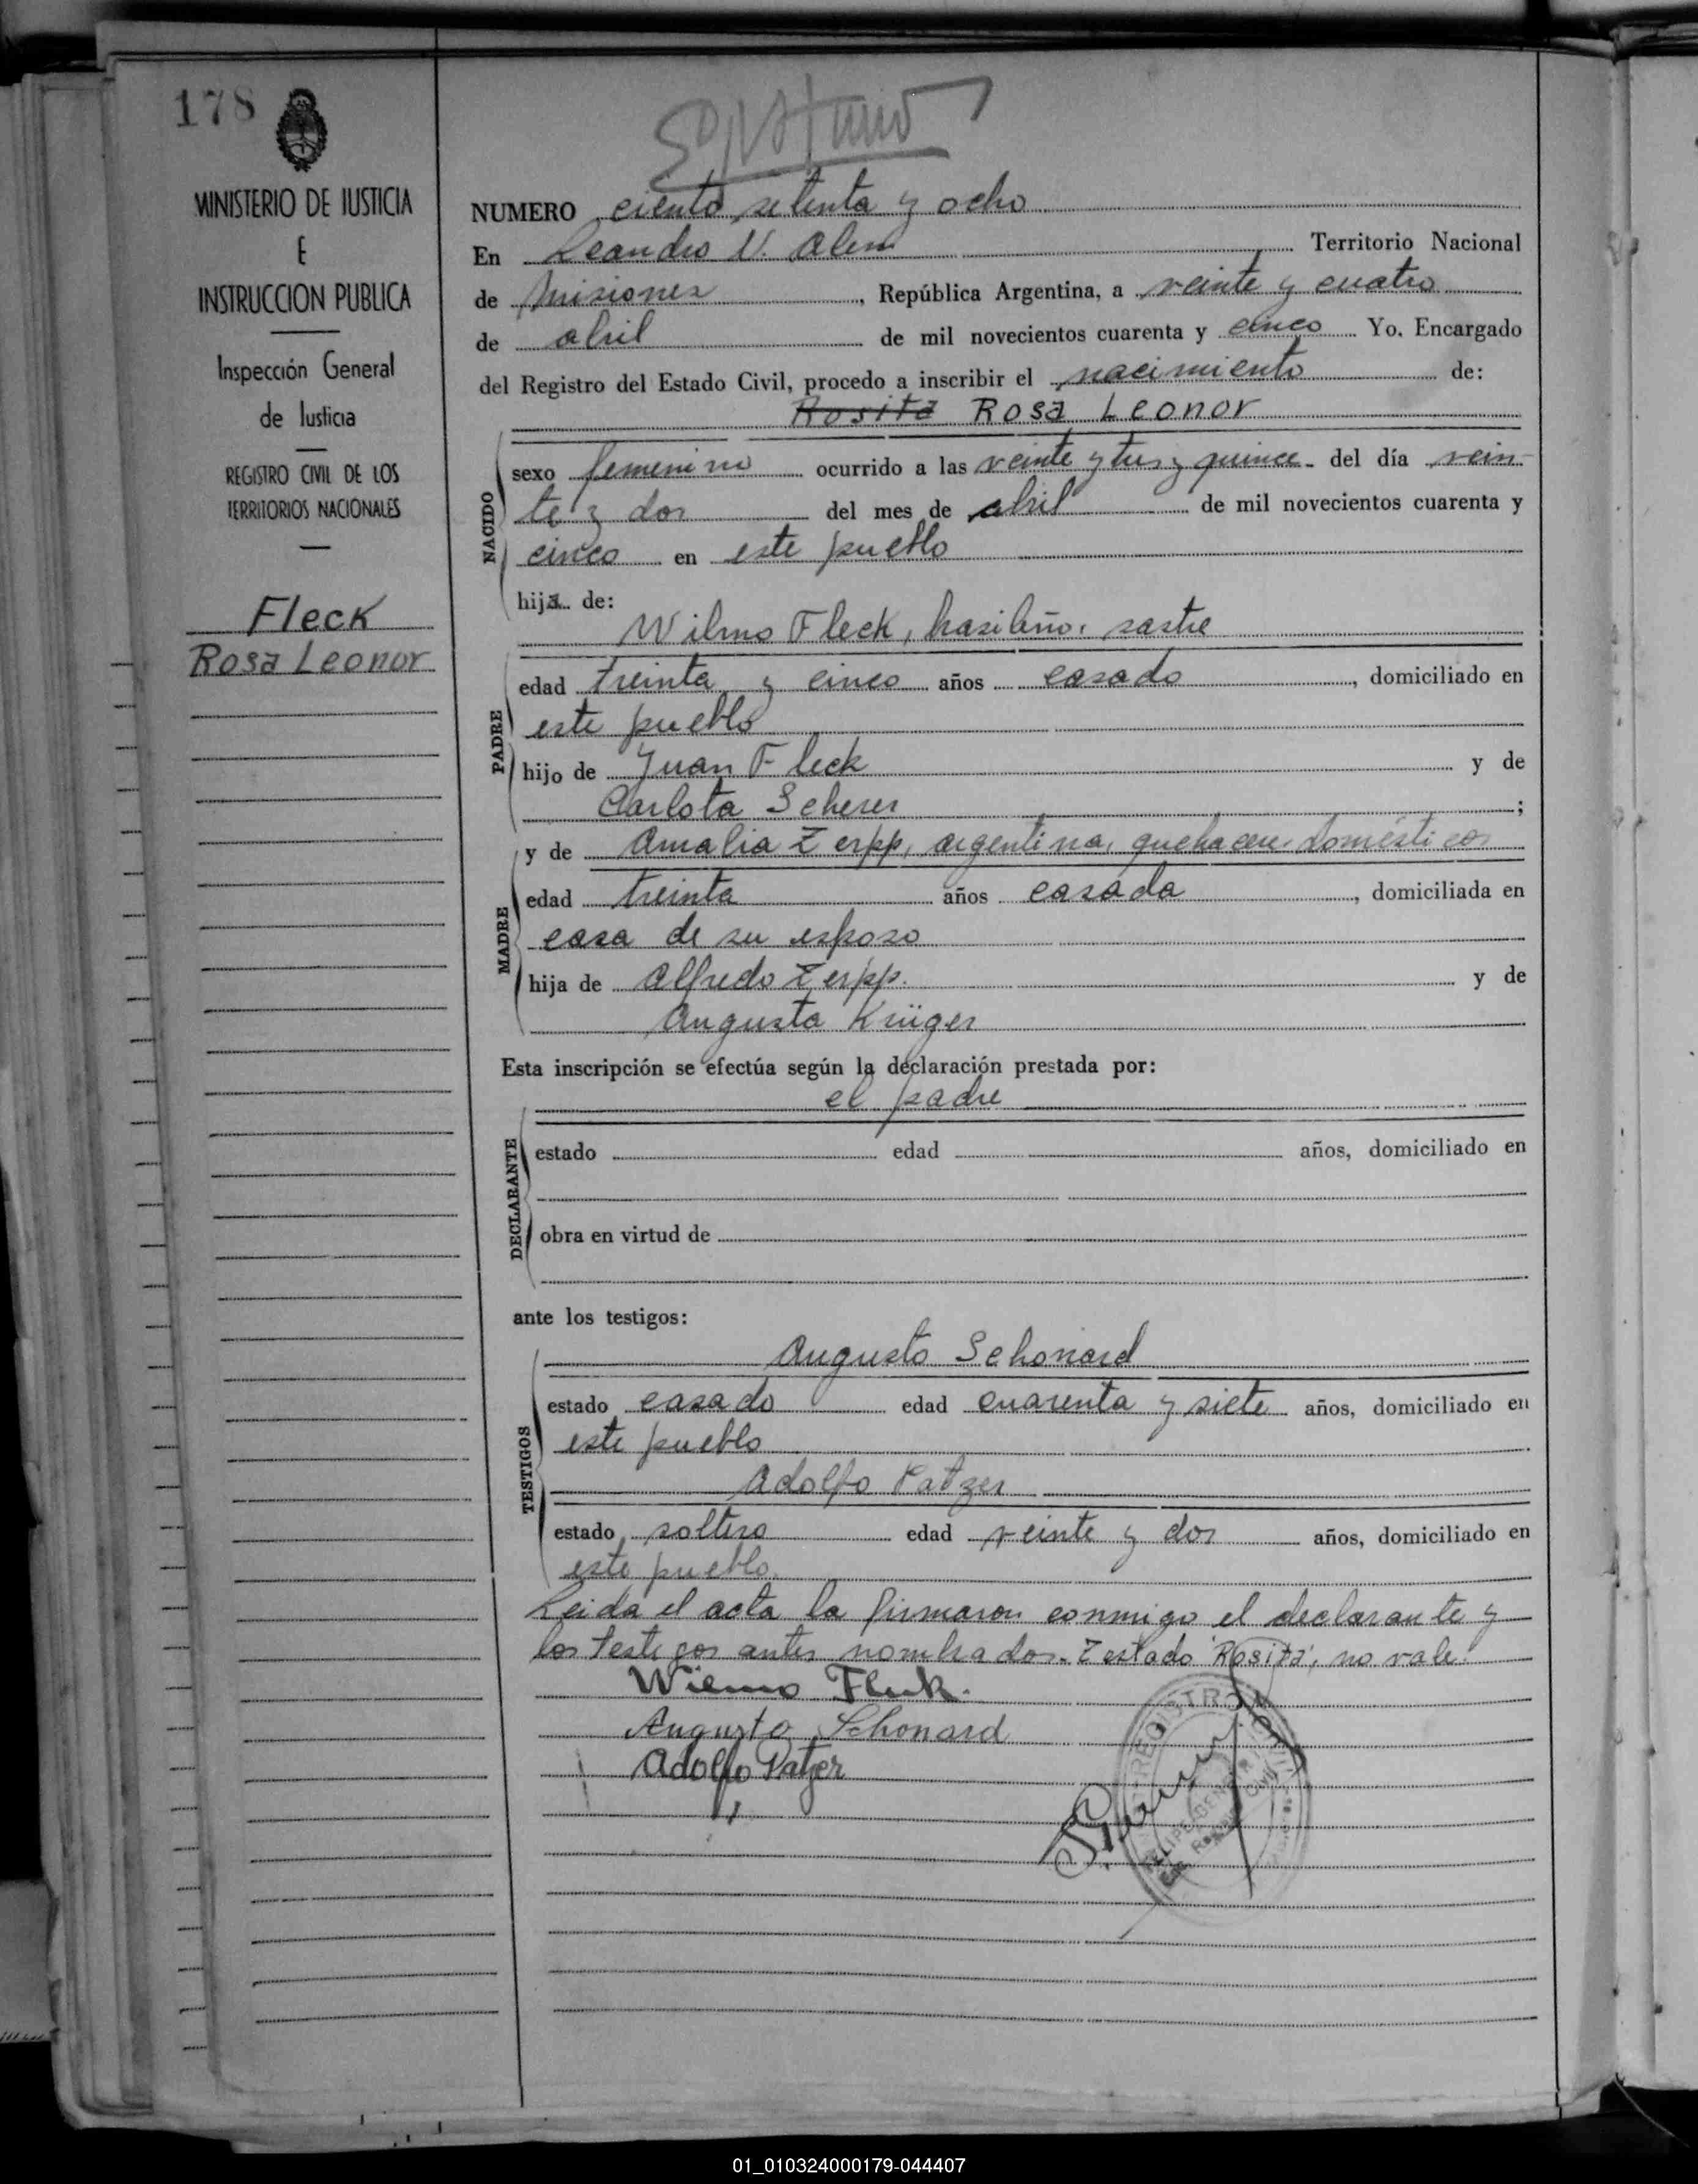 178
MINISTERIO DE JUSTICIA
E
INSTRUCCION PUBLICA
Inspección General
de Justicia
REGISTRO CIVIL DE LOS
TERRITORIOS NACIONALES
Fleck
Rosa Leonor
NUMERO ciento setenta y ocho
En Leandro N. Alem Territorio Nacional
de Misiones, República Argentina, a veinte y cuatro
de abril de mil novecientos cuarenta y cinco Yo. Encargado
del Registro del Estado Civil, procedo a inscribir el nacimiento de:
Rosita Rosa Leonor
NACIDO
sexo femenino ocurrido a las veinte y tres y quince del día vein-
te y dos del mes de abril de mil novecientos cuarenta y
cinco en este pueblo
hija de:
Wilmo Fleck, brasileño, sastre
PADRE
edad treinta y cinco años casado, domiciliado en
este pueblo
hijo de Juan Fleck y de
Carlota Scherer;
y de Amalia Zerpp, argentina, quehaceres domésticos
MADRE
edad treinta años casada, domiciliada en
casa de su esposo
hija de Alfredo Zerpp. y de
Augusta Krüger
Esta inscripción se efectúa según la declaración prestada por:
el padre
DECLARANTE
estado edad años, domiciliado en
obra en virtud de
ante los testigos:
Augusto Schonard
TESTIGOS
estado casado edad cuarenta y siete años, domiciliado en
este pueblo
Adolfo Patzer
estado soltero edad veinte y dos años, domiciliado en
este pueblo.
Leida el acta la firmaron conmigo el declarante y
los testigos antes nombrados. Testado "Rosita", no vale.
Wilmo Fleck.
Augusto Schonard
Adolfo Patzer
REGISTRO CIVIL
01_010324000179-044407